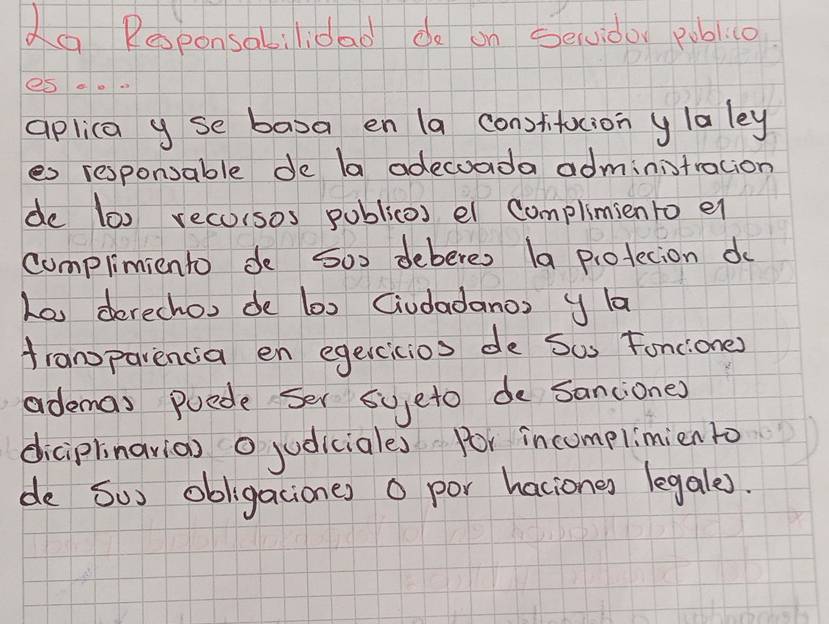 La Responsabilidad de un Servidor publico
es ....
aplica y se basa en la constitucion y la ley
es responsable de la adecuada administracion
de los recursos publicos el Complimiento el
Cumplimiento de sus deberes la protecion de
Los derechos de los Ciudadanos y la
transparencia en egercicios de Sus Funciones
ademas puede Ser sujeto de Sanciones
diciplinarias o judiciales Por incumplimiento
de Sus obligaciones o por haciones legales.